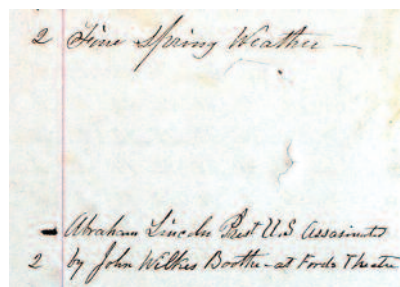 2 Fine Spring Weather —
- Abraham Lincoln Prest U.S Assasinated
2 by John Wilkes Boothe - at Fords Theatre